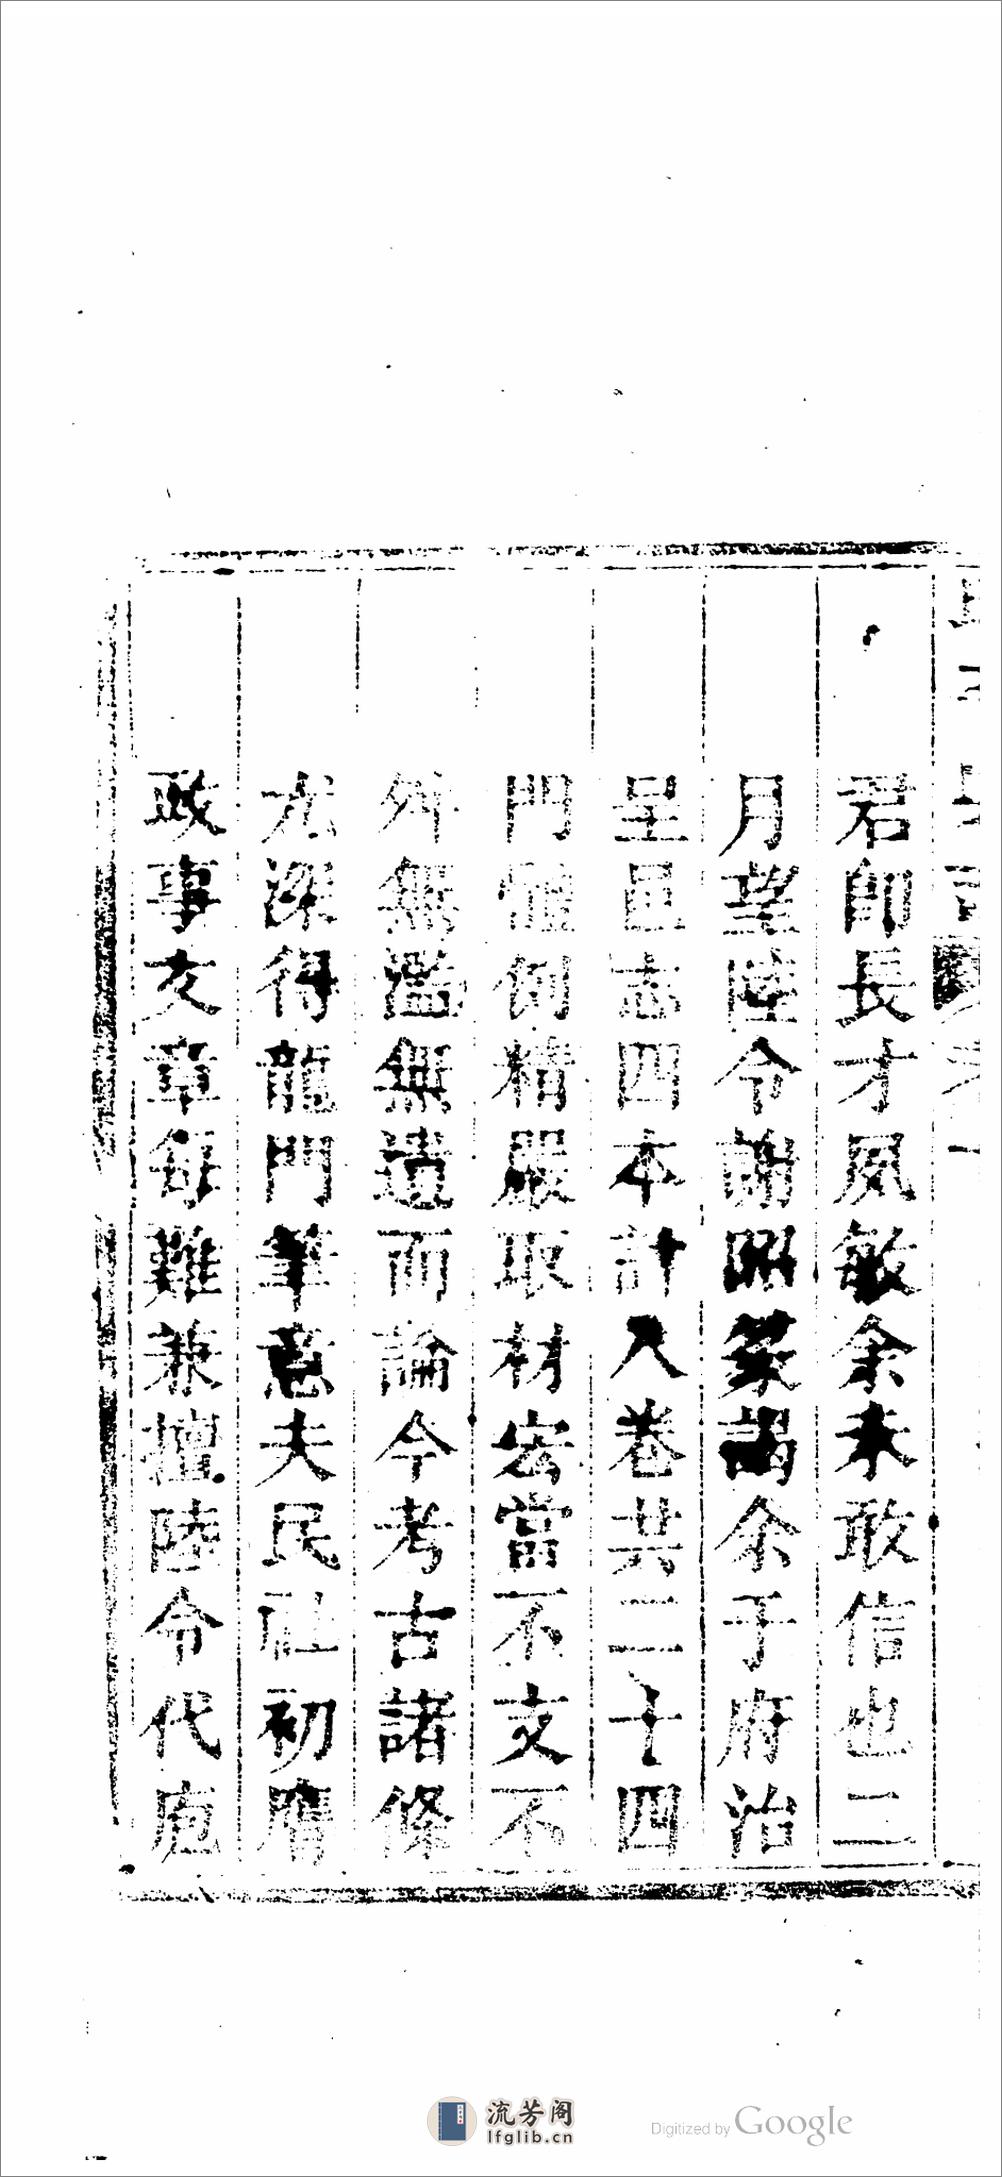 君師長才夙敏余未敢信也二
月望陸令謝昭篆謁余于府治
呈邑志四本計入卷共二十四
門體例精嚴取材宏當不支不
舛無濫無遺而論今考古諸條
尤深得龍門筆意夫民社初膺
政事文章每難兼擅陸令代庖
流芳阁
lfglib.cn
Digitized by Google